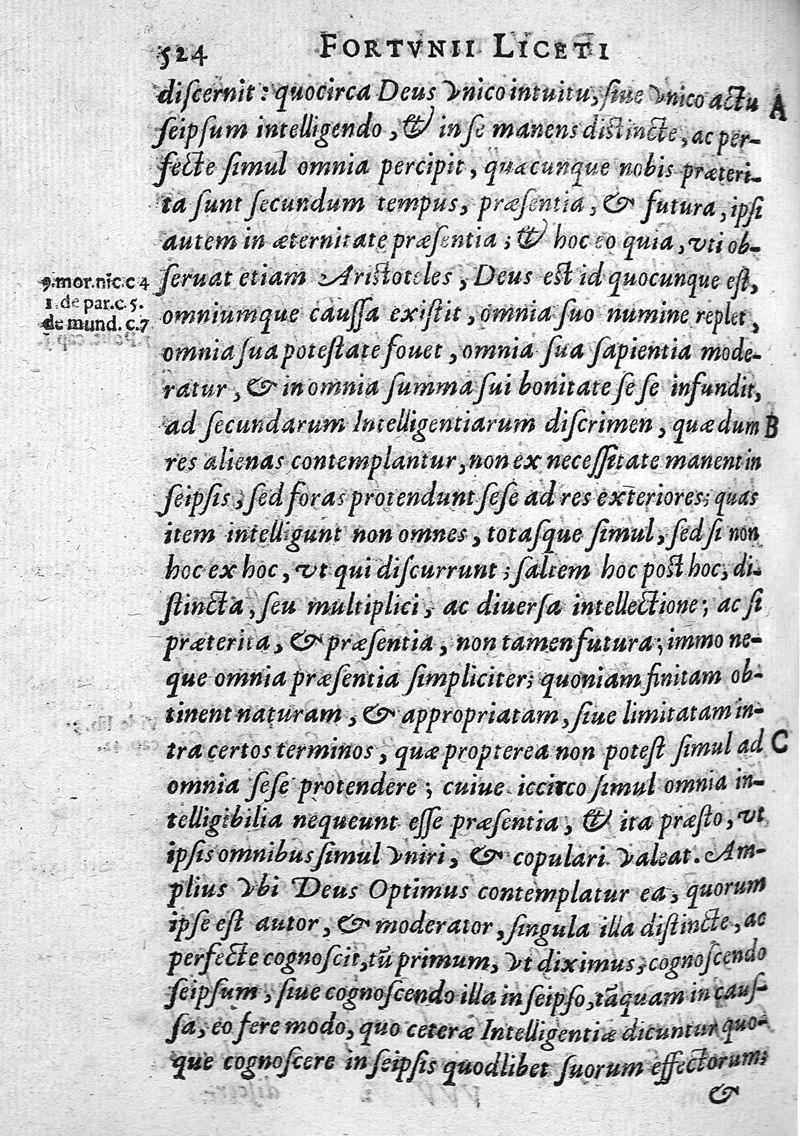 524 FORTVNII LICETI
discernit: quocirca Deus vnico intuitu, siue vnico actu A
seipsum intelligendo, & in se manens distincte, ac per-
fecte simul omnia percipit, quacunque nobis præteri-
ta sunt secundum tempus, præsentia, & futura, ipsi
autem in æternitate præsentia; & hoc eo quia, vti ob-
9. mor. nic. c 4 seruat etiam Aristoteles, Deus est id quocunque est,
1. de par. c. 5.
omniumque caussa existit, omnia suo numine replet,
de mund. c. 7
omnia sua potestate fouet, omnia sua sapientia mode-
ratur, & in omnia summa sui bonitate se se infundit,
ad secundarum Intelligentiarum discrimen, quæ dum B
res alienas contemplantur, non ex necessitate manent in
seipsis, sed foras protendunt sese ad res exteriores; quas
item intelligunt non omnes, totasque simul, sed si non
hoc ex hoc, vt qui discurrunt; saltem hoc post hoc, di-
stincta, seu multiplici, ac diuersa intellectione; ac si
præterita, & præsentia, non tamen futura; immo ne-
que omnia præsentia simpliciter; quoniam finitam ob-
tinent naturam, & appropriatam, siue limitatam in-
tra certos terminos, quæ propterea non potest simul ad C
omnia sese protendere; cuiue iccirco simul omnia in-
telligibilia nequeunt esse præsentia, & ita præsto, vt
ipsis omnibus simul vniri, & copulari valeat. Am-
plius vbi Deus Optimus contemplatur ea, quorum
ipse est autor, & moderator, singula illa distincte, ac
perfecte cognoscit, tū primum, vt diximus, cognoscendo
seipsum, siue cognoscendo illa in seipso, tāquam in caus-
sa, eo fere modo, quo ceteræ Intelligentiæ dicuntur quo-
que cognoscere in seipsis quodlibet suorum effectorum;
&